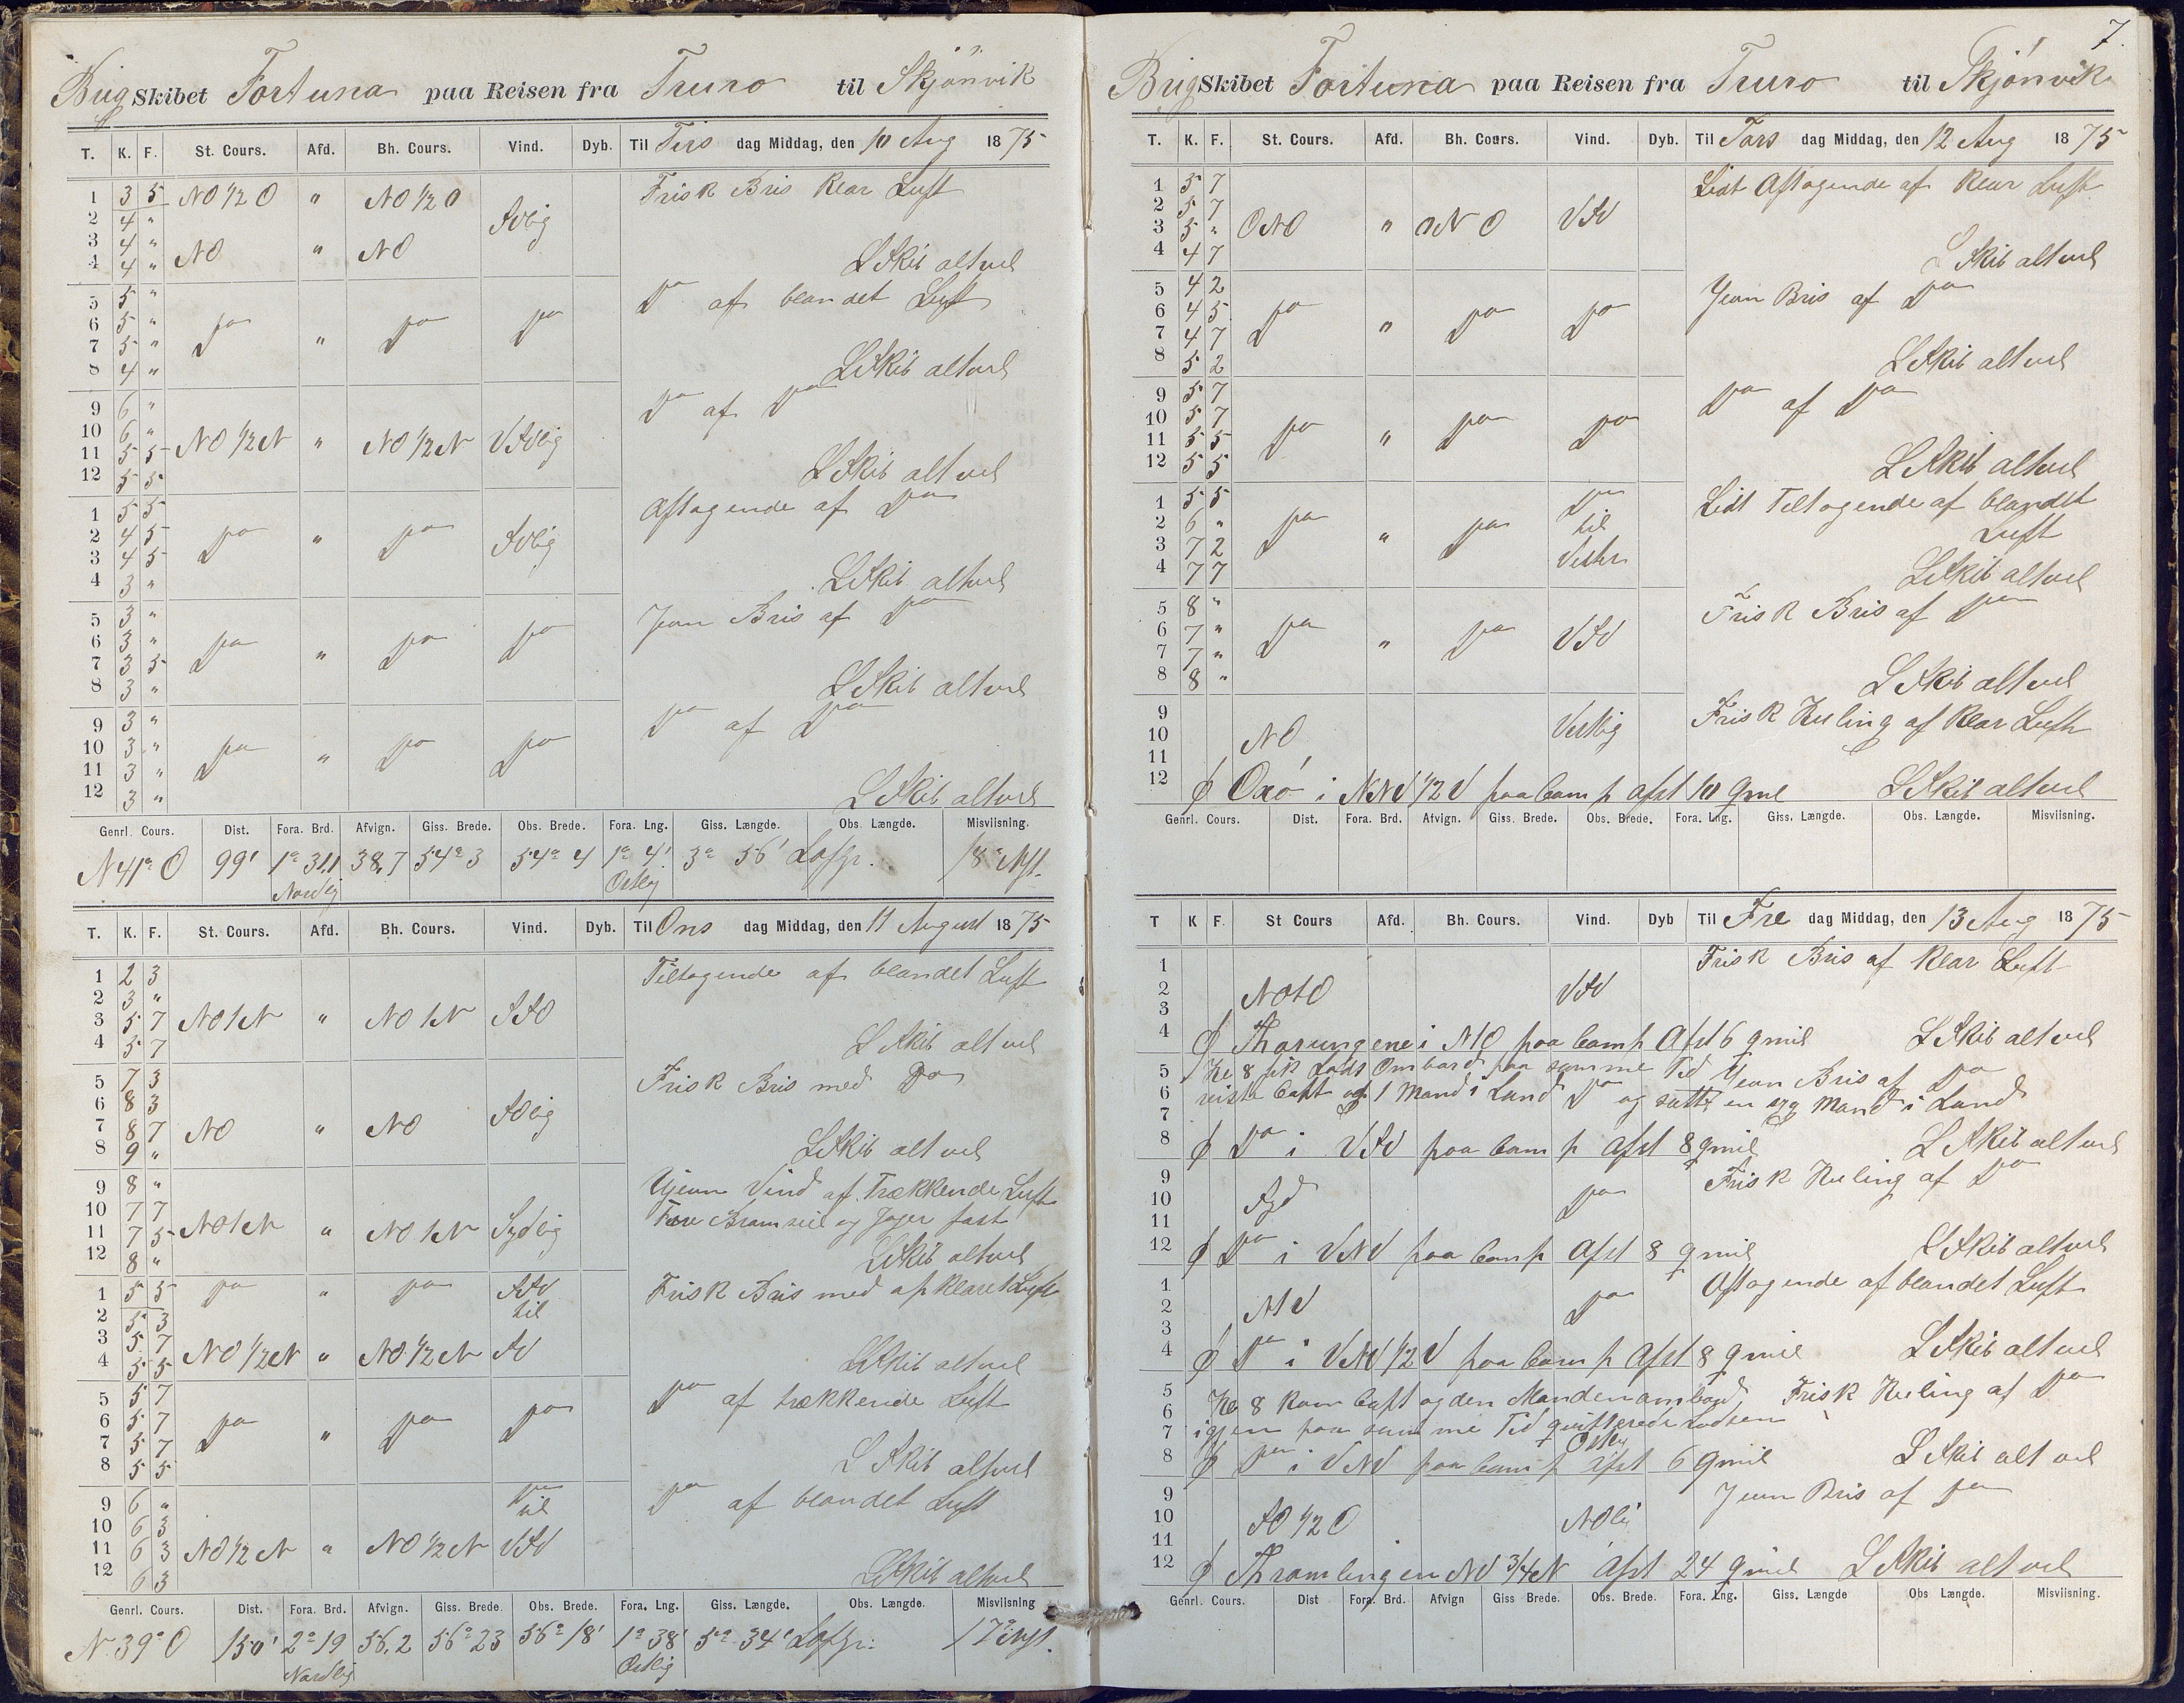 Brig Skibet Fortuna paa Reisen fra Truro til Skjönvik
T. K. F. St. Cours. Afd. Bh. Cours. Vind. Dyb. Til Tirs dag Middag, den 10 Aug 1875
Frisk Bris klar Luft
1 3 5 NO 1/2 O " NO 1/2 O
2 4 " SVlig
3 4 "
4 4 " NO " NO
L Skib alt vel
Do af blandet Luft
5 5 "
6 5 " Do " Do Do
7 5 "
8 4 "
L Skib alt vel
Do af Do
9 6 "
10 6 "
11 5 5 NO 1/2 N " NO 1/2 N VSVlig
12 5 5
L Skib alt vel
Aftagende af Do
1 5 5
2 4 5 Do " Do SVlig
3 4 5
4 3 "
L Skib alt vel
Jevn Bris af Do
5 3 "
6 3 " Do " Do Do
7 3 5
8 3 "
L Skib alt vel
Do af Do
9 3 "
10 3 " Do " Do Do
11 3 "
12 3 "
L Skib alt vel
Genrl. Cours. Dist. Fora. Brd. Afvign. Giss. Brede. Obs. Brede. Fora. Lng. Giss. Længde. Obs. Længde. Misviisning.
N 41° O 99' 1° 31,1 38,7 54° 3 54° 4 1° 4' 3° 56'
Nordlig Østlig
T. K. F. St. Cours. Afd. Bh. Cours. Vind. Dyb. Til Ons dag Middag, den 11 August 1875
Tiltagende af blandet Luft
1 2 3
2 3 "
3 5 7 NO t N " NO t N SSO
4 5 7
L Skib alt vel
Frisk Bris med Do
5 7 3
6 8 3
7 8 7 NO " NO SOlig
8 9 "
L Skib alt vel
Ujevn Vind af Trækkende Luft
9 8 "
10 7 7 Fore Bramseil og Jager fast
11 7 5 NO t N " NO t N Sydlig
12 8 "
L Skib alt vel
Frisk Bris med afklaret Luft
1 5 5 Do " Do SSV
2 5 3 til
3 5 7 NO 1/2 N " NO 1/2 N SV
4 5 5
L Skib alt vel
Do af trækkende Luft
5 5 7
6 5 7 Do " Do Do
7 5 7
8 5 5
L Skib alt vel
Do af blandet Luft
9 6 " Do
10 6 3 til
11 6 3 NO 1/2 N " NO 1/2 N VSV
12 6 3
L Skib alt vel
Genrl. Cours. Dist. Fora. Brd. Afvign. Giss. Brede. Obs. Brede. Fora. Lng. Giss. Længde. Obs. Længde. Misviisning
N 39° O 150' 2° 19 56,2 56° 23 56° 18' 1° 38' 5° 34'
Nordlig Østlig
7.
Brig Skibet Fortuna paa Reisen fra Truro til Skjönvik
T. K. F. St. Cours. Afd. Bh. Cours. Vind. Dyb. Til Tors dag Middag, den 12 Aug 1875
Lidt Aftagende af klar Luft
1 5 7
2 5 7
3 5 " ONO " ONO VSV
4 4 7
L Skib alt vel
Jevn Bris af Do
5 4 2
6 4 5 Do " Do Do
7 4 7
8 5 2
L Skib alt vel
Do af Do
9 5 7
10 5 7
11 5 5 Do " Do Do
12 5 5
L Skib alt vel
Lidt Tiltagende af blandet
Luft
1 5 5 Do
2 6 " Do " Do til
3 7 2 Vester
4 7 7
L Skib alt vel
Frisk Bris af Do
5 8 "
6 7 " Do " Do VSV
7 7 "
8 8 "
L Skib alt vel
Frisk Kuling af klar Luft
9
10 NO Vestlig
11
12 Oxö i NNV 1/2 V paa Comp Afst 10 qmil L Skib alt vel
Genrl. Cours. Dist. Fora. Brd. Afvign. Giss. Brede. Obs. Brede. Fora. Lng. Giss. Længde. Obs. Længde. Misviisning.
T K F. St Cours Afd. Bh. Cours. Vind. Dyb Til Fre dag Middag, den 13 Aug 1875
Frisk Bris af klar Luft
1
2 NO t O VSV
3
4 Thorungene i NtO paa Comp Afst 6 qmil L Skib alt vel
5 Kl 8 fik Lods Ombord paa samme Tid Jevn Bris af Do
6 reiste Capt og 1 Mand i Land Do og satte en syg Mand i Land
7
8 Do i VSV paa Comp Afst 8 qmil L Skib alt vel
9 Frisk Kuling af Do
10 Syd Do
11
12 Do i VNV paa Comp Afst 8 qmil L Skib alt vel
1 Aftagende af blandet Luft
2 NtV Do
3
4 Do i VNV 1/2 V paa Comp Afst 8 qmil L Skib alt vel
5 Kl 8 kom Capt og den Manden ombord Frisk Kuling af Do
6
7 igjen paa samme Tid qvitterede Lodsen
8 Do i VNV paa Comp Afst 6 qmil L Skib alt vel
9 Jevn Bris af Do
10 SO 1/2 O NOlig
11
12 NV 3/4 N Afst 24 qmil L Skib alt vel
Genrl. Cours. Dist Fora. Brd. Afvign Giss Brede. Obs. Brede. Fora. Lng. Giss. Længde Obs Længde. Misviisning.